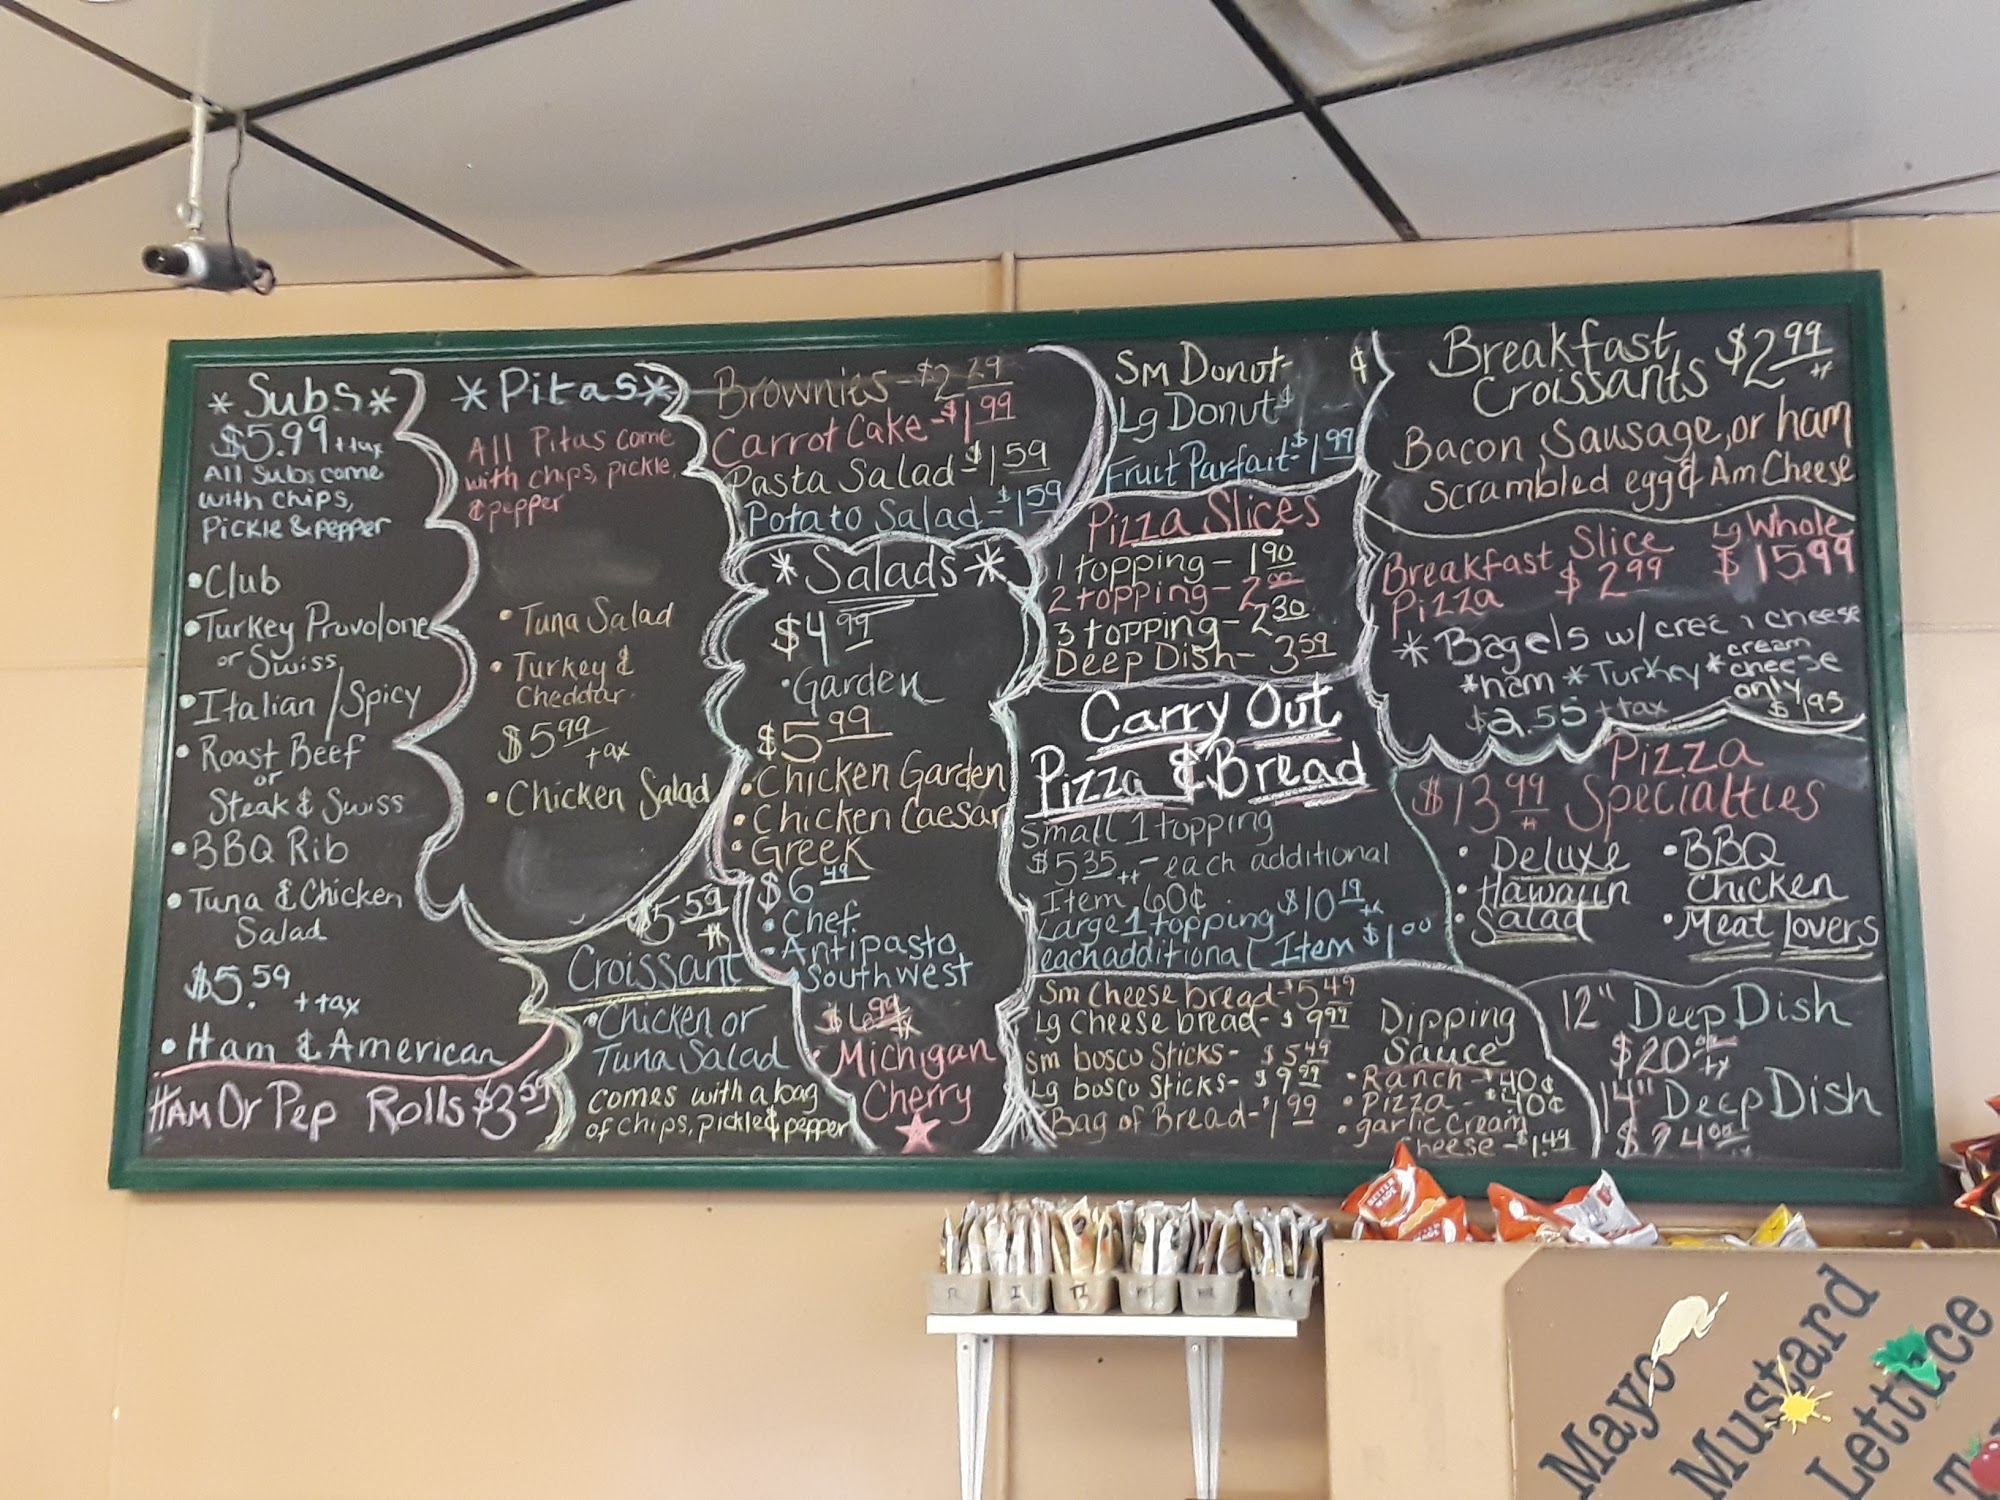 * Subs *
$5.99 + tax
All Subs come
with chips,
Pickle & pepper
• Club
• Turkey Provolone
or Swiss
• Italian / Spicy
• Roast Beef
or
Steak & Swiss
• BBQ Rib
• Tuna & Chicken
Salad
$5.59 + tax
• Ham & American
Ham Or Pep Rolls $3.59
* Pitas *
All Pitas come
with chips, pickle,
& pepper
• Tuna Salad
• Turkey &
Cheddar
$5.99
+ ax
• Chicken Salad
$5.59
Croissant
• Chicken or
Tuna Salad
comes with a bag
of chips, pickle & pepper
Brownies - $2.29
Carrot Cake - $1.99
Pasta Salad - $1.59
Potato Salad - $1.59
* Salads *
$4.99
• Garden
$5.99
• Chicken Garden
• Chicken Caesar
• Greek
$6.49
• Chef
• Antipasto
Southwest
$6.99
• Michigan
Cherry
Sm Donut - ¢
Lg Donut $
Fruit Parfait - $1.99
Pizza Slices
1 topping - 1.90
2 topping - 2.00
3 topping - 2.30
Deep Dish - 3.59
Carry Out
Pizza & Bread
Small 1 topping
$5.35 - each additional
Item 60¢
Large 1 topping $10.19
each additional Item $1.00
Sm Cheese bread - $5.49
Lg Cheese bread - $9.99
Sm bosco Sticks - $5.49
Lg bosco Sticks - $9.99
Bag of Bread - $1.99
Dipping
Sauce
• Ranch - 40¢
• Pizza - 40¢
• garlic Cream
Cheese - $1.49
Breakfast
Croissants $2.99
Bacon, Sausage, or ham
Scrambled egg & Am Cheese
Breakfast Slice Lg Whole
Pizza $2.99 $15.99
* Bagels w/ crea cheese
* ham * Turkey * cream
cheese
only
$2.55 + tax $1.95
Pizza
$13.99 Specialties
• Deluxe
• Hawaiin
• Salad
• BBQ
Chicken
• Meat Lovers
12" Deep Dish
$20.00
14" Deep Dish
$24.00
BETTER MADE
Mayo
Mustard
Lettuce